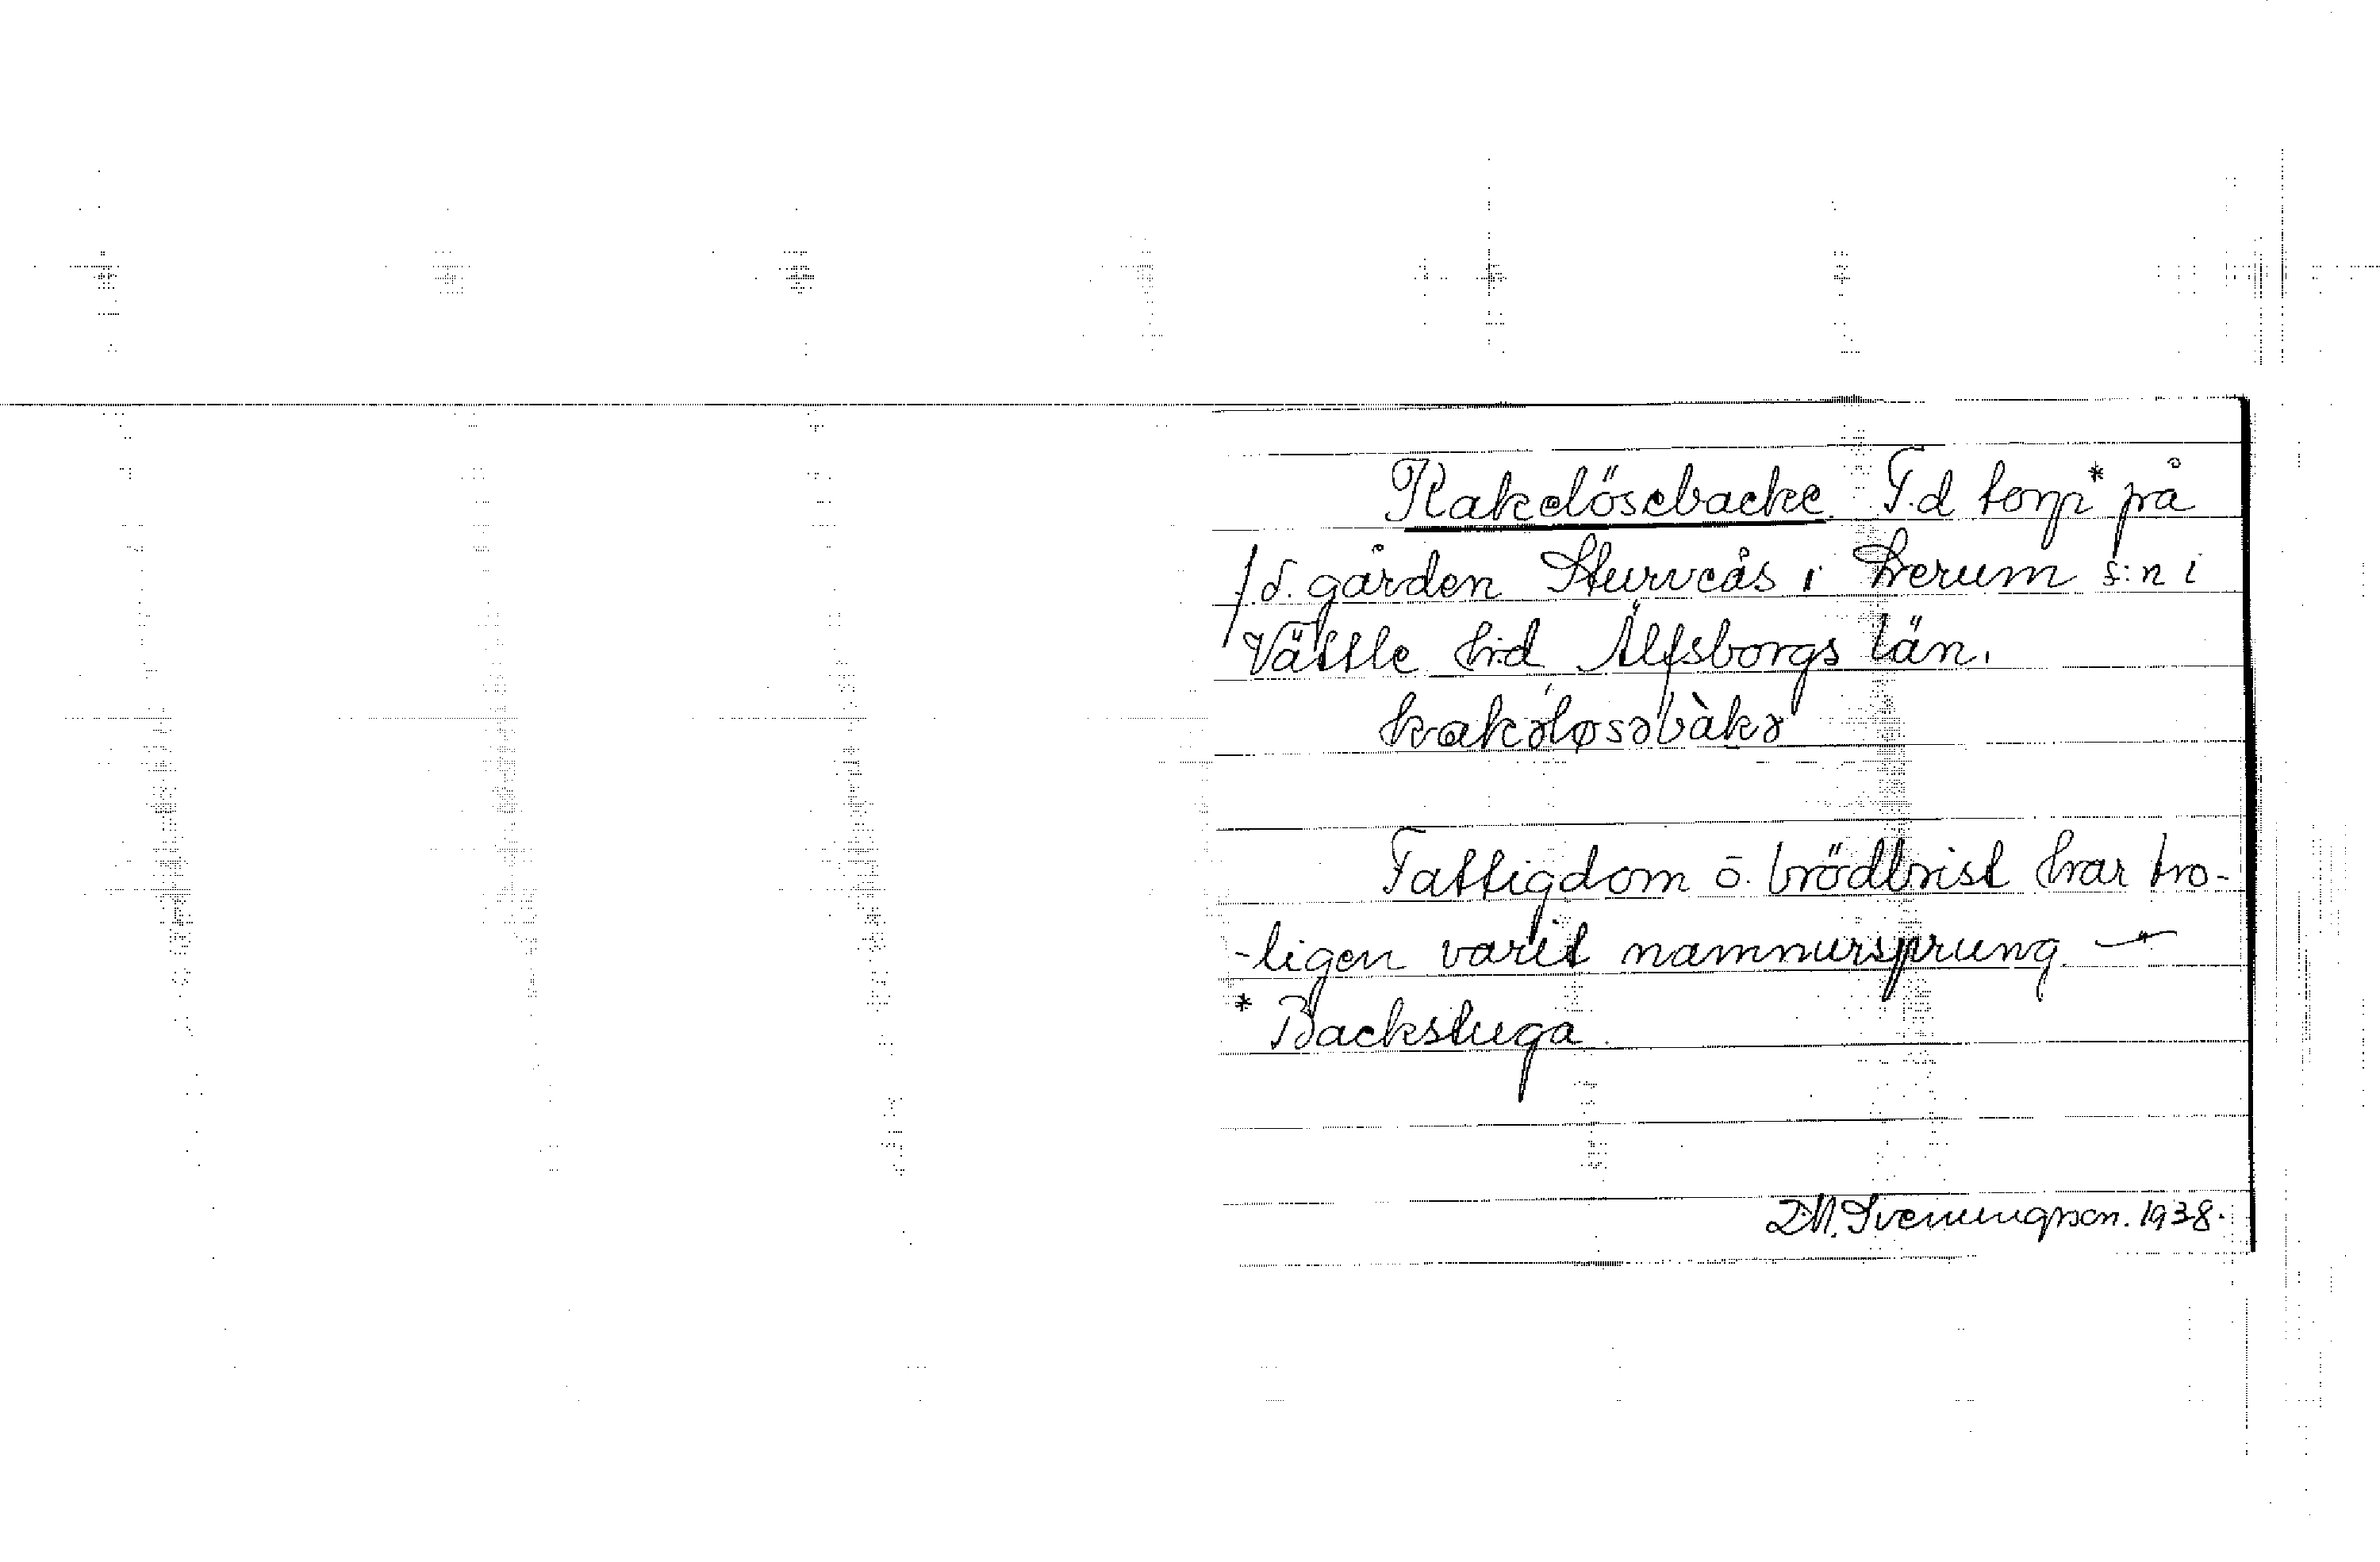 Kakelösebacke. F.d torp* på
f.d. gården Hurveås i Lerum s:n i
Vättle h:d Älfsborgs län.
kakəløsəbàkə
Fattigdom o. brödbrist har tro-
-ligen varit namnursprung
* Backstuga
D.N. Svenningson. 1938.